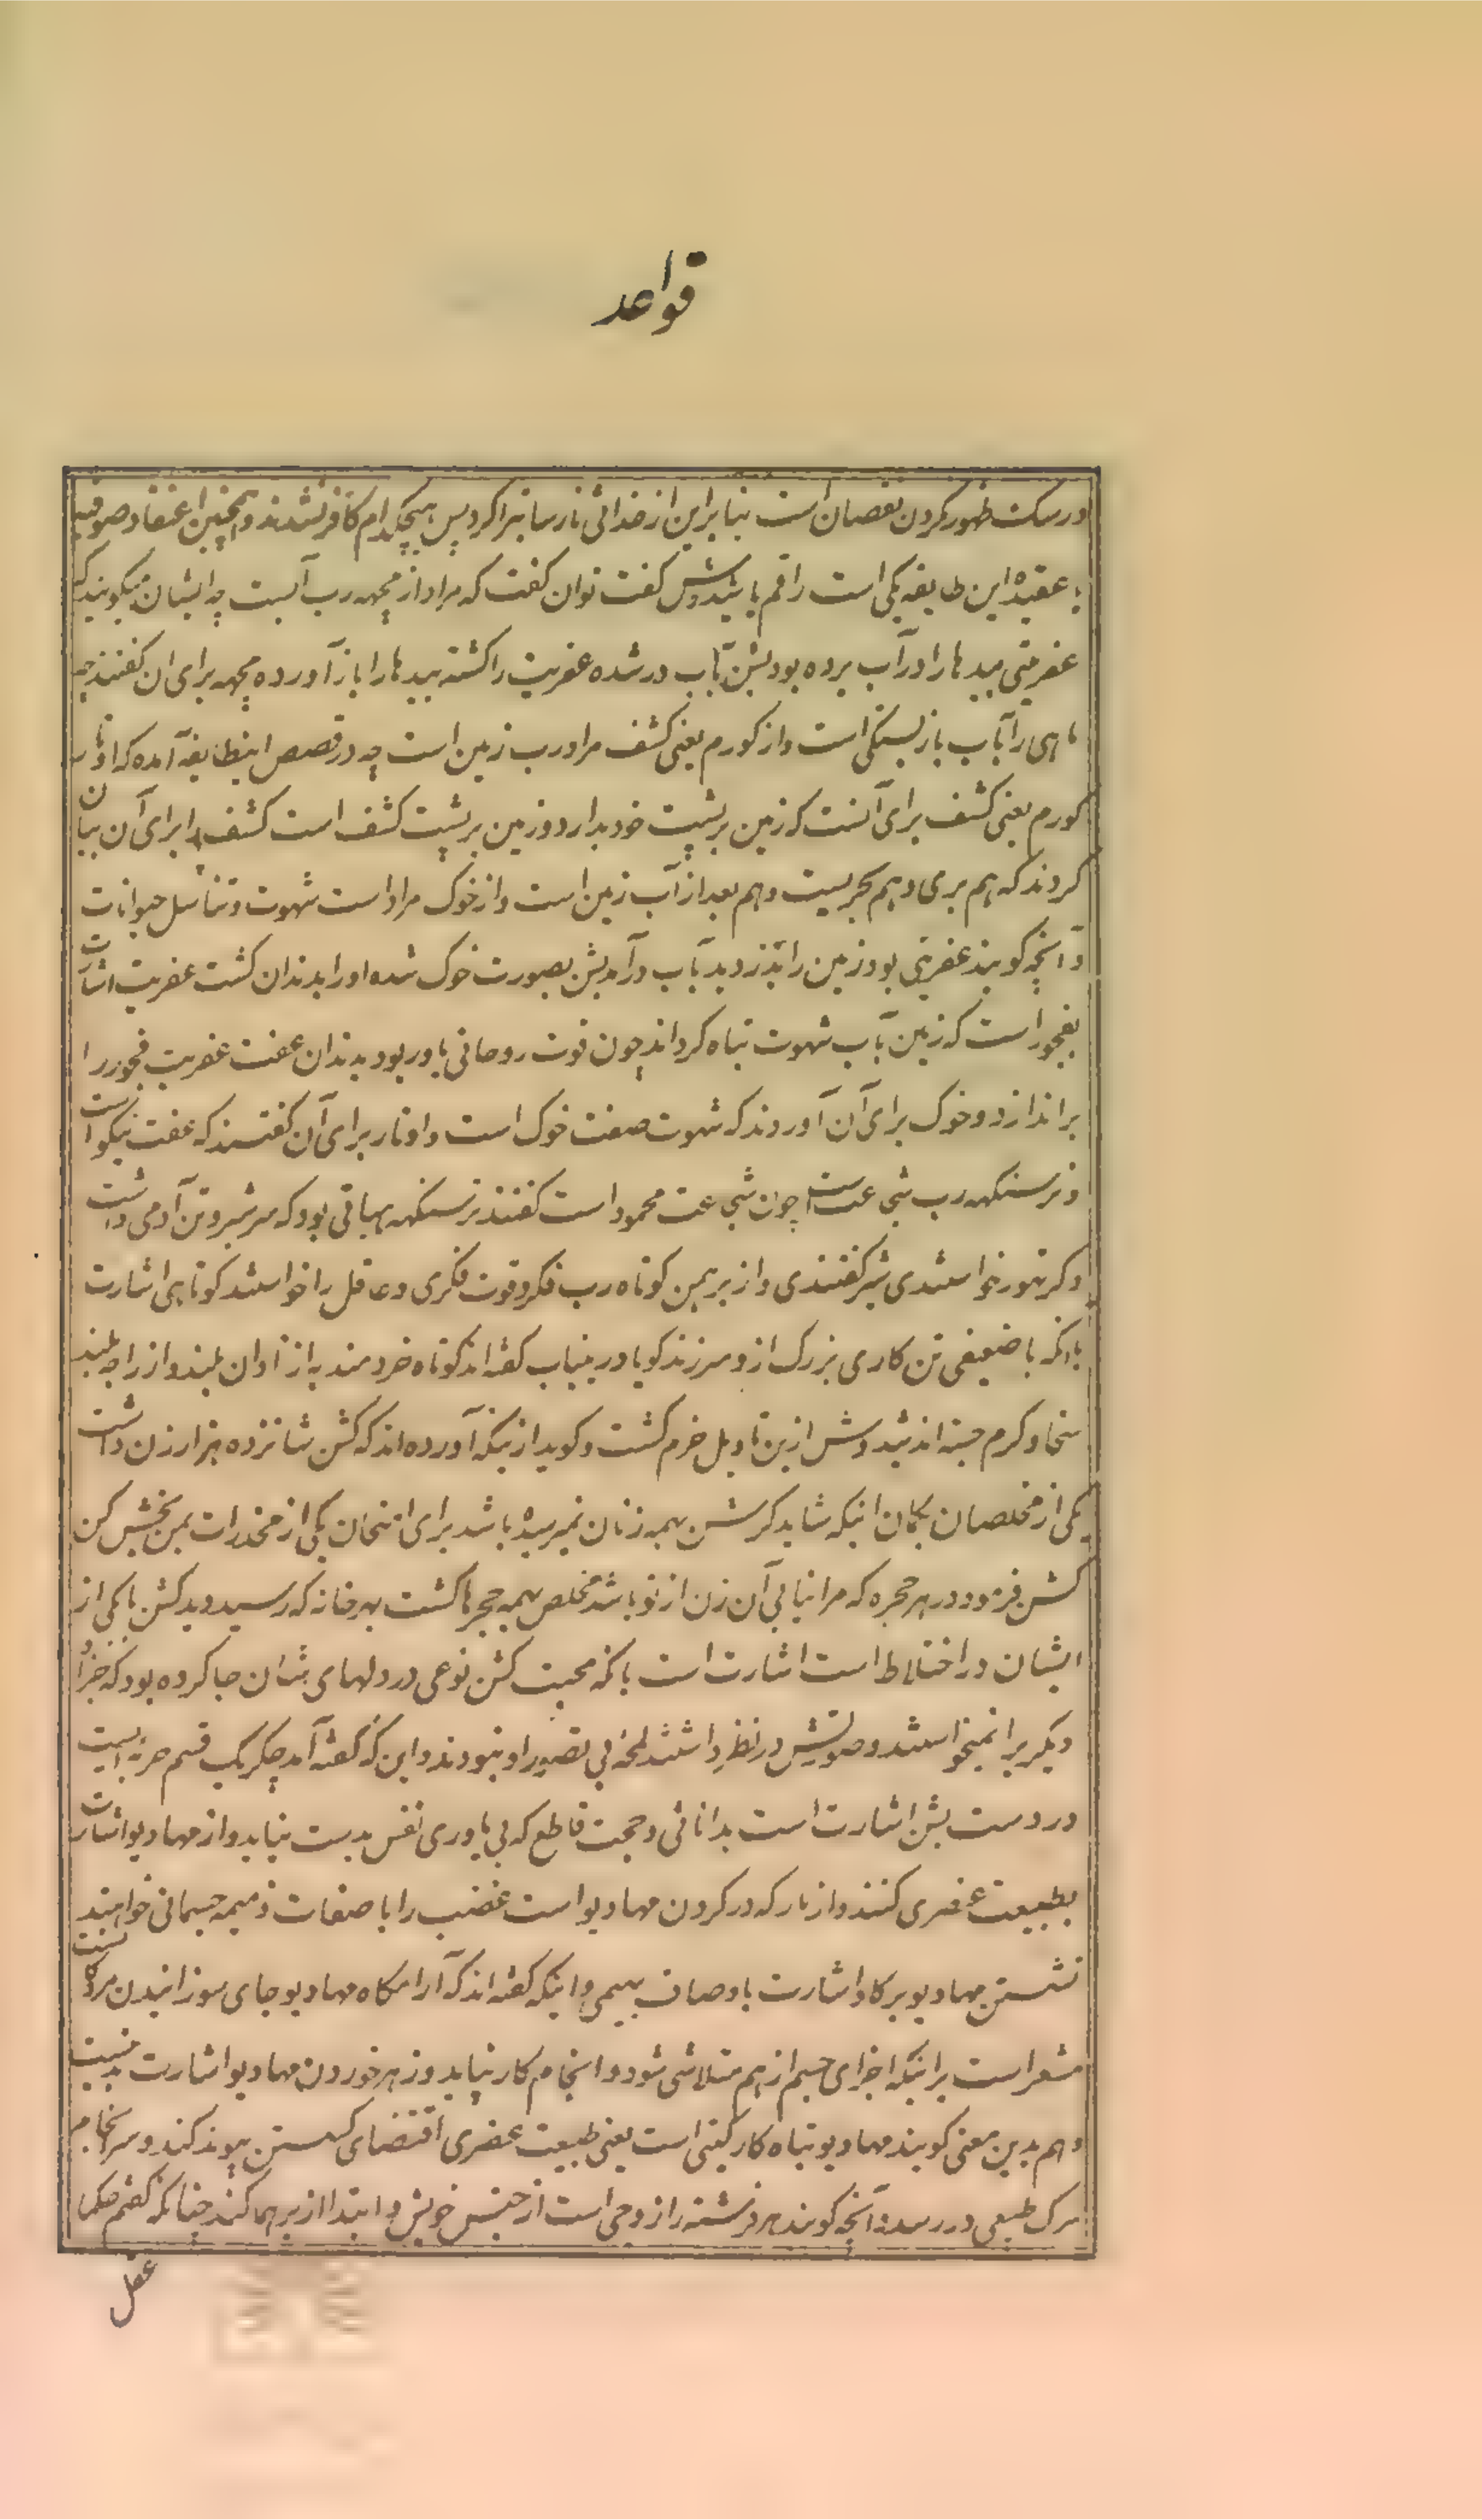 قواعد
در سگ ظهور کردن نقصان است بنا براین از خدائی نارسا تبرا کرد پس هیچکدام کافر نشدند و همچنین اعتقاد صوفیه
با عقیده این طایفه یکی است راقم با شیدوش گفت توان گفت که مراد از مچهه رب آبست چه ایشان میگویند که
عفریتی بیدها را در آب برده بود بشن بآب در شده عفریت را کشته بیدها را باز آورده مچهه برای ان گفتند چه
ماهی را بآب باز بستگی است و از کورم یعنی کشف مراد رب زمین است چه در قصص اینطایفه آمده که اوتار
کورم یعنی کشف برای آنست که زمین بر پشت خود بدارد و زمین بر پشت کشف است کشف را برای آن بیان
کردند که هم بری و هم بحریست و هم بعد از آب زمین است و از خوک مراد است شهوت و تناسل حیوانات
و آنچه گویند عفریتی بود زمین را بدزدید بآب در آمد بشن بصورت خوک شده او را بدندان کشت عفریت اشارت
بفجور است که زمین بآب شهوت تباه گرداند چون قوت روحانی یاور بود بدندان عفت عفریت فجور را
براندازد و خوک برای آن آوردند که شهوت صفت خوک است و اوتار برای آن گفتند که عفت نیکو است
و نرسنگهه رب شجاعت است چون شجاعت محمود است گفتند نرسنگهه بهیاتی بود که سر شیر و تن آدمی داشت
و گر تهور خواستندی شیر گفتندی و از برهمن کوتاه رب فکر و قوت فکری و عاقل را خواستند کوتاهی اشارت
بانکه با ضعیفی تن کاری بزرگ ازو سر زند گویا درینباب گفته اند کوتاه خردمند به از نادان بلند و از راجه بلند
سخا و کرم جسته اند شیدوش ازین تاویل خرم گشت و گوید ازینکه آورده اند که کشن شانزده هزار زن داشت
یکی از مخلصان بگمان اینکه شاید کرشن بهمه زنان نمیرسیده باشد برای امتحان یکی از مخدرات بمن بخش کن
کشن فرمود در هر حجره که مرا نیابی آن زن از تو باشد مخلص بهمه حجرها گشت بهر خانه که رسید دید کشن با یکی از
ایشان در اختلاط است اشارت است بانکه محبت کشن نوعی در دلهای شان جا کرده بود که جز او
دیگریرا نمیخواستند و صورتش در نظر داشتند لمحۀ بی تصور او نبودند و این که گفته آمد چکر یک قسم حربه ایست
در دست بشن اشارت است بدانائی و حجت قاطع که بی یاوری نفس بدست نیاید و از مهادیو اشارت
بطبیعت عنصری کنند و از مار که در گردن مهادیو است غضب را با صفات ذمیمه جسمانی خواهند
نشستن مهادیو بر گاو اشارت باوصاف بهیمی و اینکه گفته اند که آرامگاه مهادیو جای سوزانیدن مرده است
مشعر است براینکه اجزای جسم از هم متلاشی شود و انجام کار نپاید و زهر خوردن مهادیو اشارت بدینست
و هم بدین معنی گویند مهادیو تباه کار گیتی است یعنی طبیعت عنصری اقتضای گسستن پیوند کند و سرانجام
مرگ طبیعی در رسد و آنچه گویند هر فرشته را زوجی است از جنس خویش و ابتدا از برهما کنند چنانکه گفتم حکما
عقل